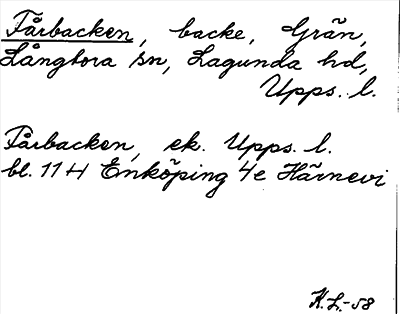 Fårbacken, backe, Grän,
Långtora sn, Lagunda hd,
Upps. l.
Fårbacken, ek. Upps. l.
bl. 11 H Enköping 4e Härnevi
K.L.-58